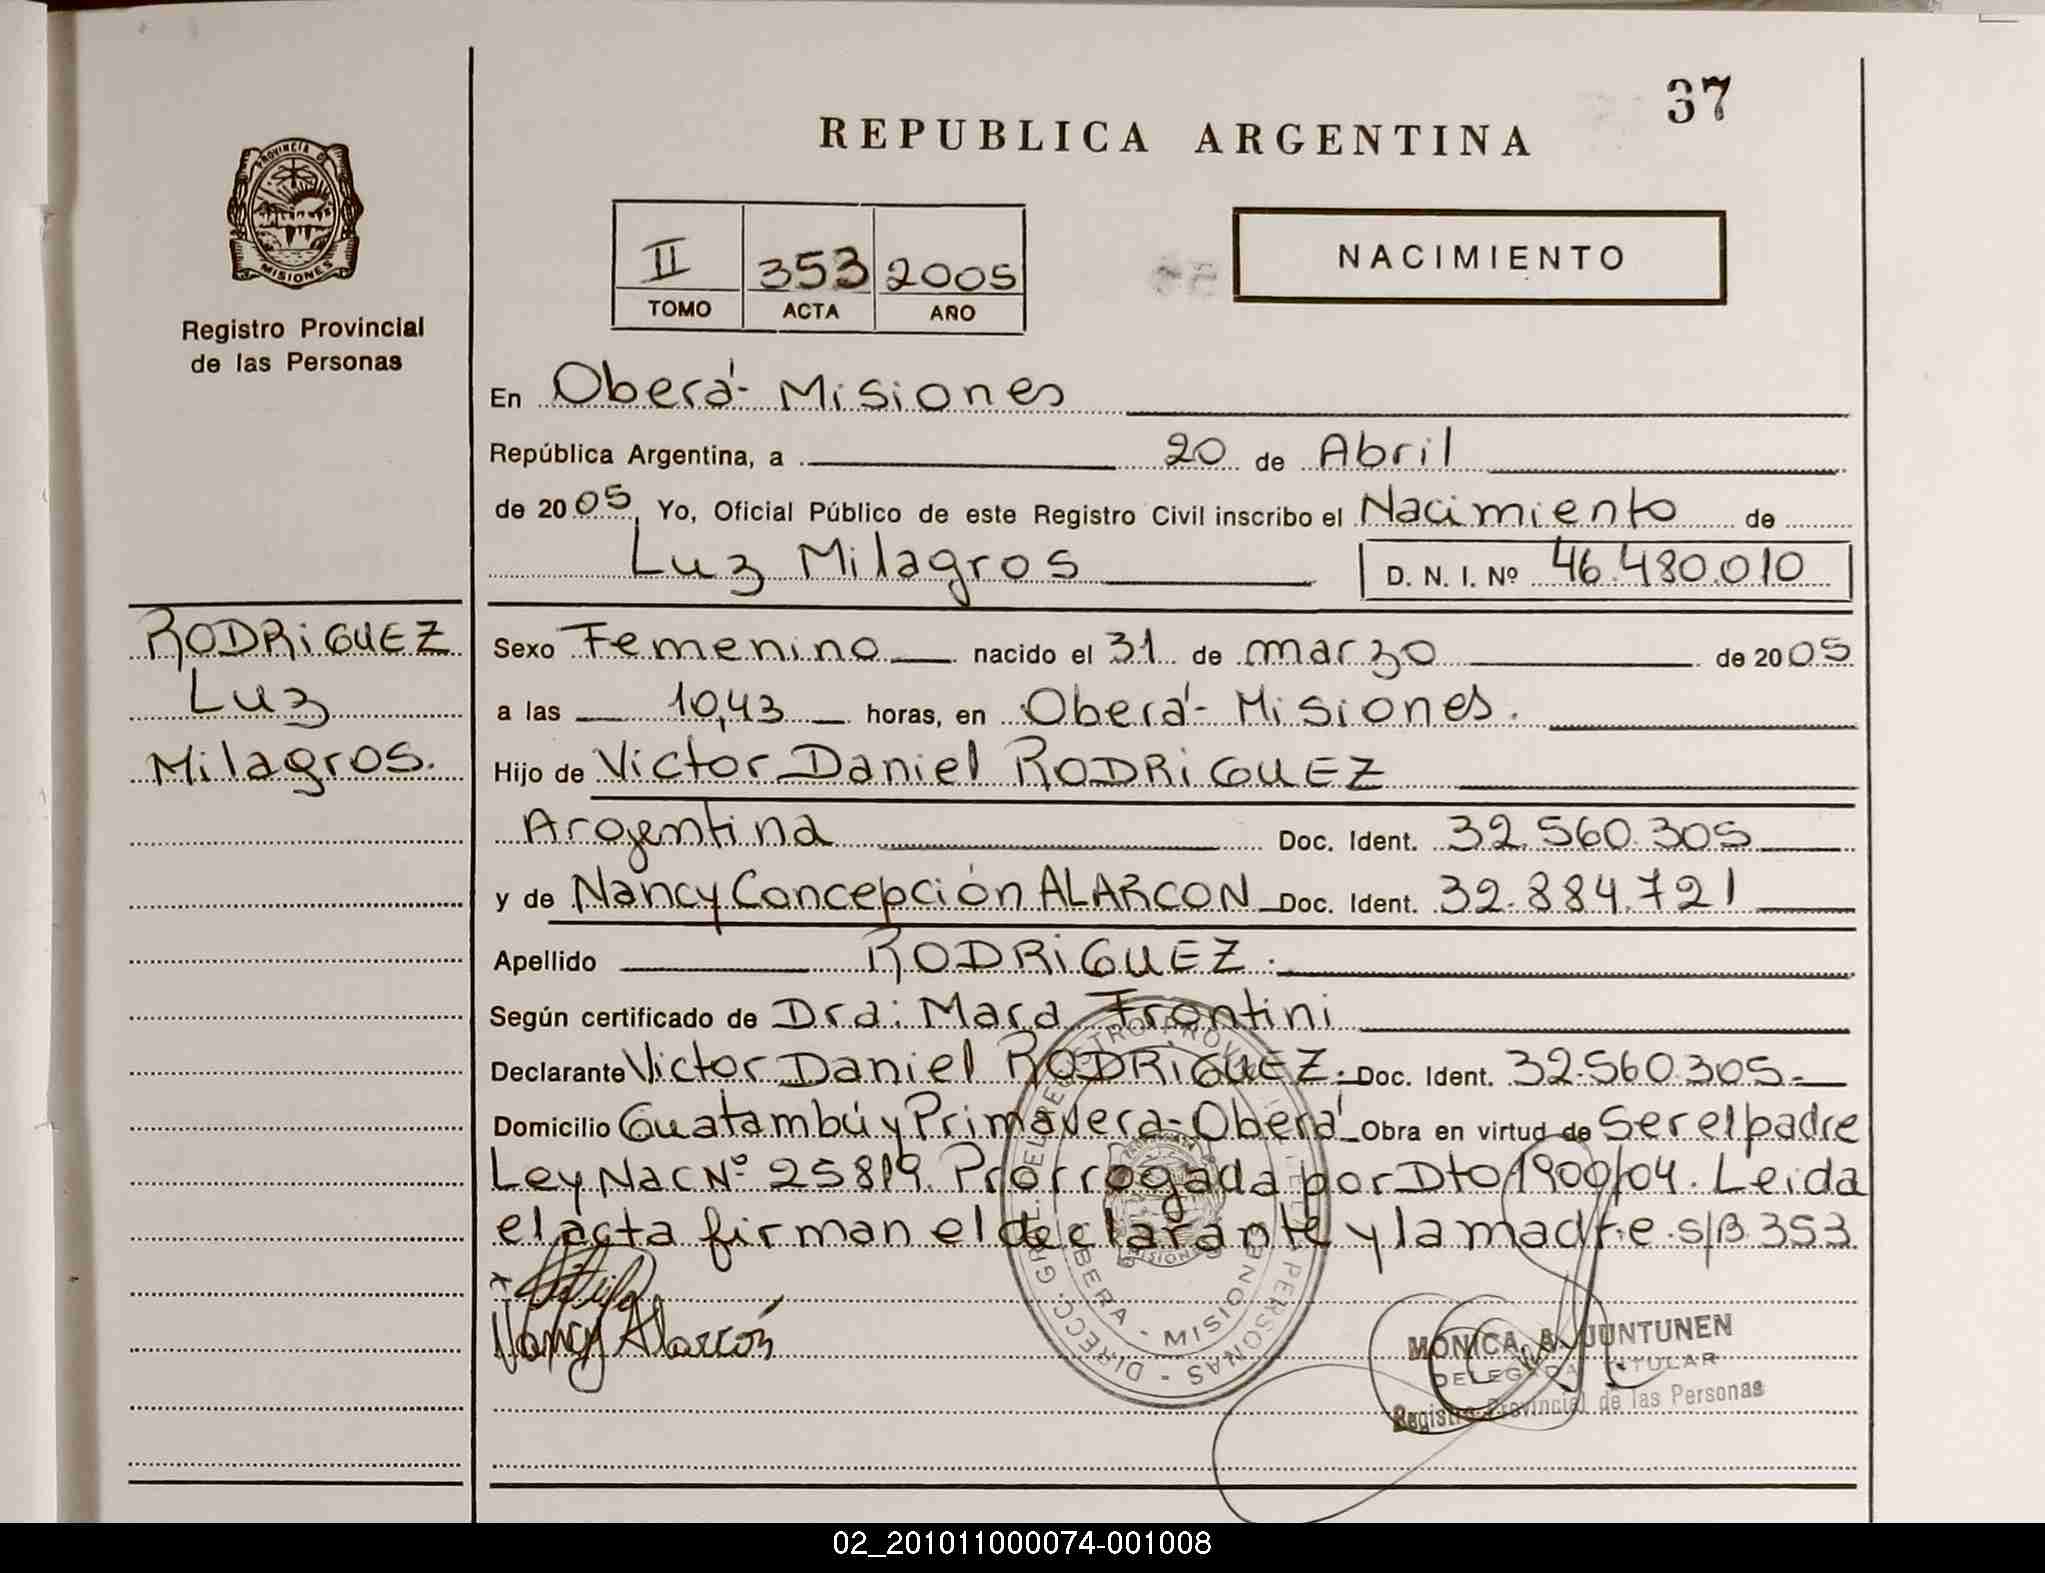 37
REPUBLICA ARGENTINA
PROVINCIA DE
MISIONES
Registro Provincial
de las Personas
II 353 2005
TOMO ACTA AÑO
NACIMIENTO
En Oberá - Misiones
República Argentina, a 20 de Abril
de 2005, Yo, Oficial Público de este Registro Civil inscribo el Nacimiento de
Luz Milagros D. N. I. Nº 46.480.010
RODRiGUEZ
Luz
Milagros.
Sexo Femenino nacido el 31 de marzo de 2005
a las 10,43 horas, en Oberá - Misiones.
Hijo de Victor Daniel RODRiGUEZ
Argentina Doc. Ident. 32.560.305
y de Nancy Concepción ALARCON Doc. Ident. 32.884.721
Apellido RODRiGUEZ.
Según certificado de Dra: Mara Frontini
Declarante Victor Daniel RODRiGUEZ. Doc. Ident. 32.560.305.-
Domicilio Guatambú y Primavera - Oberá Obra en virtud de Ser el padre
Ley Nac Nº 25819. Prorrogada por Dto 1900/04. Leida
el acta firman el declarante y la madre. s/B 353
Nancy Alarcón
DIRECC. GRAL. DEL REGISTRO PROVINCIAL DE LAS PERSONAS
OBERA - MISIONES
MONICA A. JUNTUNEN
DELEGADA TITULAR
Registro Provincial de las Personas
02_201011000074-001008